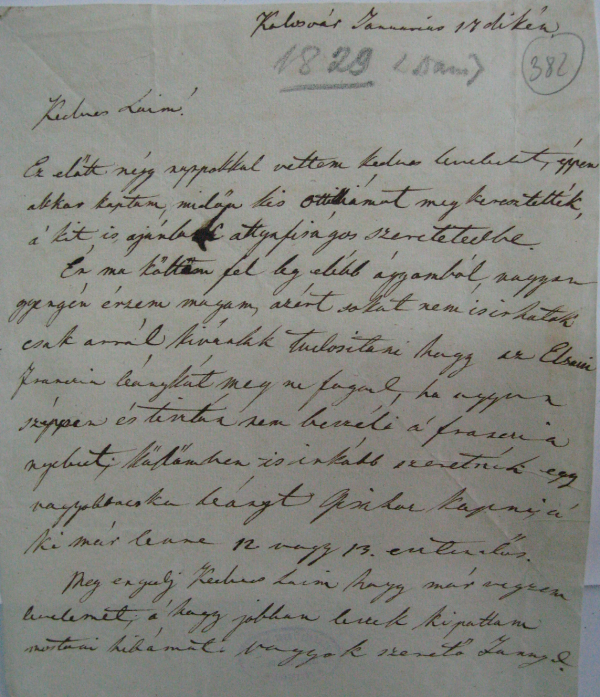 Kolosvár Januarius 17dikén
1829 (Dani)
382
Kedves Laim!
Ez előtt négy nappokkal vettem kedves leveledet, éppen
akkor kaptam, midőn kis Ottiliámat meg keresztelték,
á kit is, ajánlok attyafiságos szeretetedbe.
Én ma költem fel leg elébb ágyamból, nagyon
gyengén érzem magam, azért sokat nem is irhatok
csak arrál kivánlak tudositani hogy az
Francia leánykát meg ne fogad, ha ugyan
széppen és tisztán nem beszéli á francia
nyelvet; külömben is inkább szeretnék egy
nagyobbocska leányt kapni, á
ki már lenne 12 vagy 13. esztendős.
Meg engedj Kedves Laim hogy már végzem
levelemet, á hogy jobban leszek ki pótlam
mostani hibámat. vagyok szerető